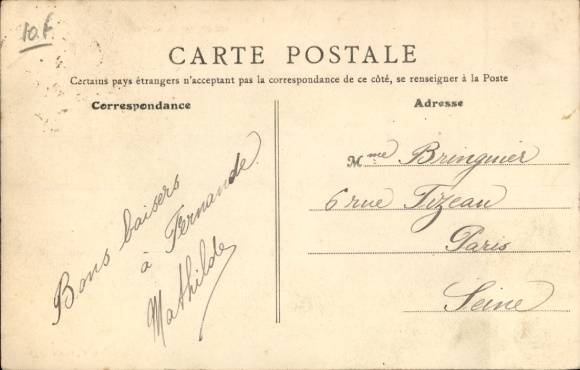 10 f
CARTE POSTALE
Certains pays étrangers n'acceptant pas la correspondance de ce côté, se renseigner à la Poste
Correspondance
Bons baisers
à Fernande
Mathilde
Adresse
Mme Bringuier
6 rue Tizeau
Paris
Seine